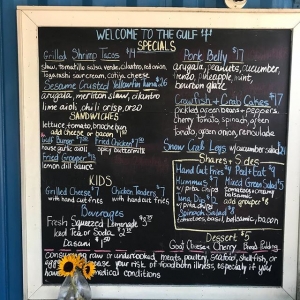 WELCOME TO THE GULF
SPECIALS
Grilled Shrimp Tacos
slaw, tomatillo salsa verde, cilantro, red onion,
sour cream, cotija cheese
Sesame Crusted Yellowfin tuna $26
arugula, cilantro
lime aioli, chili crisp, orzo
SANDWICHES
lettuce, tomato, brioche bun
add cheese or bacon
Gulf Burger Fried Chicken
house garlic aioli spicy buttermilk
Fried Grouper
lemon dill sauce
KIDS
Grilled Cheese Chicken Tenders
with hand cut fries with hand cut fries
Beverages
Fresh Squeezed Lemonade
Iced Tea or Soda
Dasani
Pork Belly $17
arugula, peanuts, cucumber,
pineapple, mint,
bourbon glaze
Crawfish + Crab Cakes $17
pickled green beans + peppers,
cherry tomato, spinach, green
tomato, green onion, remoulade
Snow Crab Legs w/ cucumber salad
Shares + Sides
Hand Cut Fries $4
Hummus Mixed Green Salad
w/ pita chips
tuna Dip
w/ pita chips add grouper $8
Spinach Salad
tomatoes, basil, balsamic, bacon
Dessert $5
Goat Cheese + Cherry Bread Pudding
consuming raw or undercooked meats, poultry, seafood, shellfish, or
increase your risk of foodborn illness, especially if you
medical conditions